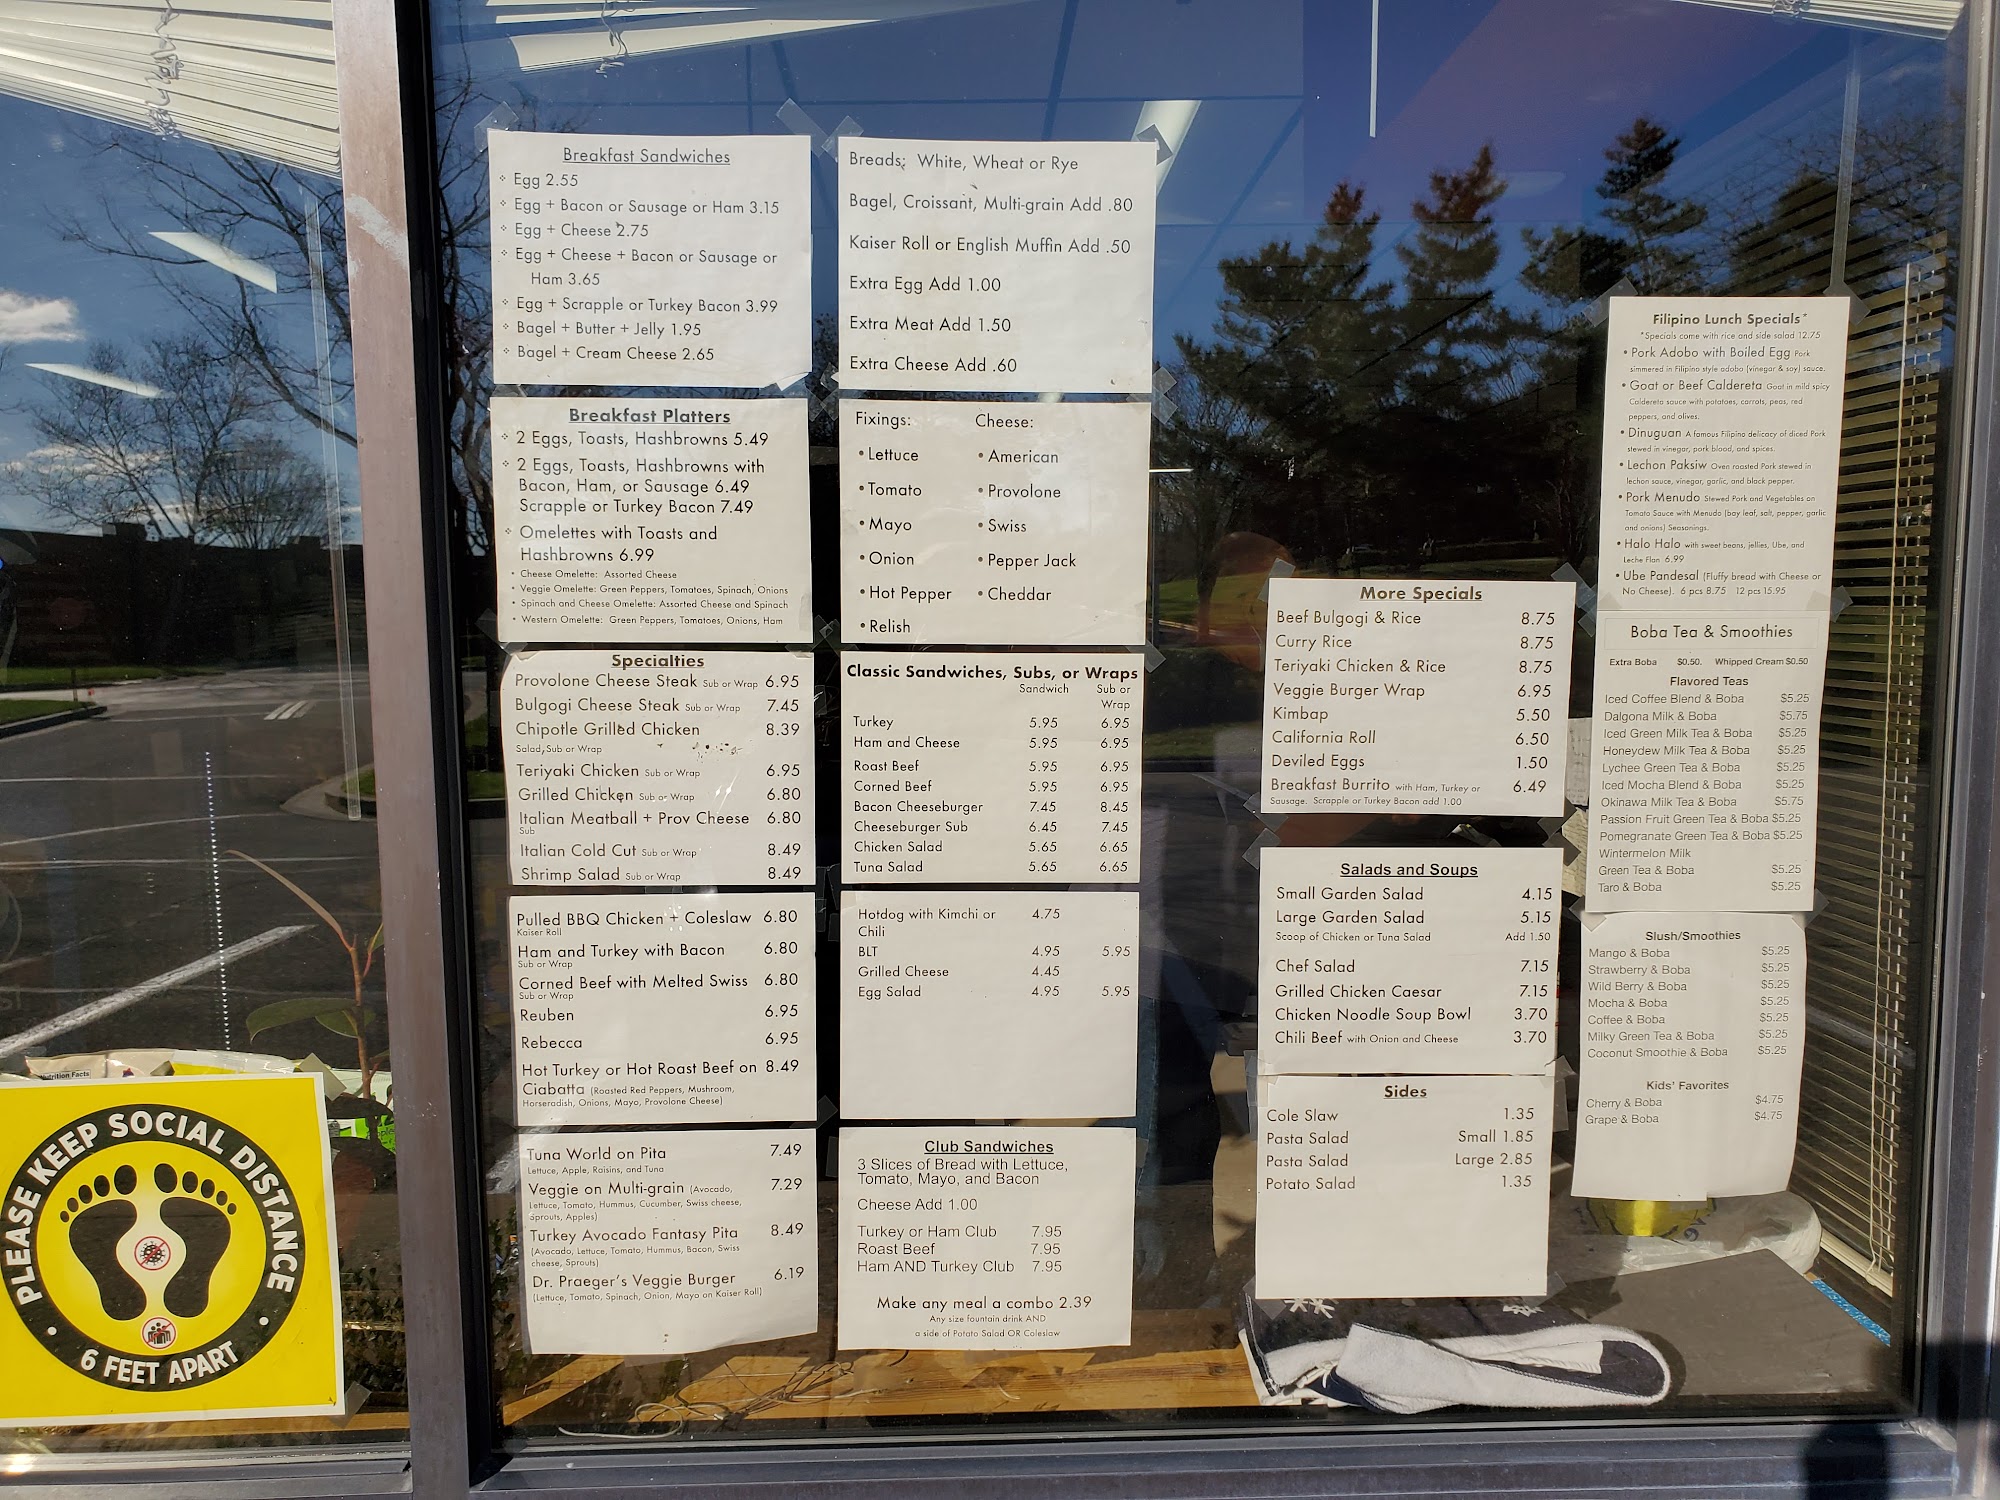 Breakfast Sandwiches
Egg 2.55
Egg + Bacon or Sausage or Ham 3.15
Egg + Cheese 2.75
Egg + Cheese + Bacon or Sausage or
Ham 3.65
Egg + Scrapple or Turkey Bacon 3.99
Bagel + Butter + Jelly 1.95
Bagel + Cream Cheese 2.65
Breakfast Platters
2 Eggs, Toasts, Hashbrowns 5.49
2 Eggs, Toasts, Hashbrowns with
Bacon, Ham, or Sausage 6.49
Scrapple or Turkey Bacon 7.49
Omelettes with Toasts and
Hashbrowns 6.99
• Cheese Omelette: Assorted Cheese
• Veggie Omelette: Green Peppers, Tomatoes, Spinach, Onions
• Spinach and Cheese Omelette: Assorted Cheese and Spinach
• Western Omelette: Green Peppers, Tomatoes, Onions, Ham
Specialties
Provolone Cheese Steak Sub or Wrap 6.95
Bulgogi Cheese Steak Sub or Wrap 7.45
Chipotle Grilled Chicken 8.39
Salad, Sub or Wrap
Teriyaki Chicken Sub or Wrap 6.95
Grilled Chicken Sub or Wrap 6.80
Italian Meatball + Prov Cheese 6.80
Sub
Italian Cold Cut Sub or Wrap 8.49
Shrimp Salad Sub or Wrap 8.49
Pulled BBQ Chicken + Coleslaw 6.80
Kaiser Roll
Ham and Turkey with Bacon 6.80
Sub or Wrap
Corned Beef with Melted Swiss 6.80
Sub or Wrap
Reuben 6.95
Rebecca 6.95
Hot Turkey or Hot Roast Beef on 8.49
Ciabatta (Roasted Red Peppers, Mushroom,
Horseradish, Onions, Mayo, Provolone Cheese)
Tuna World on Pita 7.49
Lettuce, Apple, Raisins, and Tuna
Veggie on Multi-grain (Avocado, 7.29
Lettuce, Tomato, Hummus, Cucumber, Swiss cheese,
Sprouts, Apples)
Turkey Avocado Fantasy Pita 8.49
(Avocado, Lettuce, Tomato, Hummus, Bacon, Swiss
cheese, Sprouts)
Dr. Praeger's Veggie Burger 6.19
(Lettuce, Tomato, Spinach, Onion, Mayo on Kaiser Roll)
Breads: White, Wheat or Rye
Bagel, Croissant, Multi-grain Add .80
Kaiser Roll or English Muffin Add .50
Extra Egg Add 1.00
Extra Meat Add 1.50
Extra Cheese Add .60
Fixings:
• Lettuce
• Tomato
• Mayo
• Onion
• Hot Pepper
• Relish
Cheese:
• American
• Provolone
• Swiss
• Pepper Jack
• Cheddar
Classic Sandwiches, Subs, or Wraps
Sandwich Sub or
Wrap
Turkey 5.95 6.95
Ham and Cheese 5.95 6.95
Roast Beef 5.95 6.95
Corned Beef 5.95 6.95
Bacon Cheeseburger 7.45 8.45
Cheeseburger Sub 6.45 7.45
Chicken Salad 5.65 6.65
Tuna Salad 5.65 6.65
Hotdog with Kimchi or 4.75
Chili
BLT 4.95 5.95
Grilled Cheese 4.45
Egg Salad 4.95 5.95
Club Sandwiches
3 Slices of Bread with Lettuce,
Tomato, Mayo, and Bacon
Cheese Add 1.00
Turkey or Ham Club 7.95
Roast Beef 7.95
Ham AND Turkey Club 7.95
Make any meal a combo 2.39
Any size fountain drink AND
a side of Potato Salad OR Coleslaw
More Specials
Beef Bulgogi & Rice 8.75
Curry Rice 8.75
Teriyaki Chicken & Rice 8.75
Veggie Burger Wrap 6.95
Kimbap 5.50
California Roll 6.50
Deviled Eggs 1.50
Breakfast Burrito with Ham, Turkey or 6.49
Sausage. Scrapple or Turkey Bacon add 1.00
Salads and Soups
Small Garden Salad 4.15
Large Garden Salad 5.15
Scoop of Chicken or Tuna Salad Add 1.50
Chef Salad 7.15
Grilled Chicken Caesar 7.15
Chicken Noodle Soup Bowl 3.70
Chili Beef with Onion and Cheese 3.70
Sides
Cole Slaw 1.35
Pasta Salad Small 1.85
Pasta Salad Large 2.85
Potato Salad 1.35
Filipino Lunch Specials*
*Specials come with rice and side salad 12.75
• Pork Adobo with Boiled Egg Pork
simmered in Filipino style adobo (vinegar & soy) sauce.
• Goat or Beef Caldereta Goat in mild spicy
Caldereta sauce with potatoes, carrots, peas, red
peppers, and olives.
• Dinuguan A famous Filipino delicacy of diced Pork
stewed in vinegar, pork blood, and spices.
• Lechon Paksiw Oven roasted Pork stewed in
lechon sauce, vinegar, garlic, and black pepper.
• Pork Menudo Stewed Pork and Vegetables on
Tomato Sauce with Menudo (bay leaf, salt, pepper, garlic
and onions) Seasonings.
• Halo Halo with sweet beans, jellies, Ube, and
Leche Flan 6.99
• Ube Pandesal (Fluffy bread with Cheese or
No Cheese). 6 pcs 8.75 12 pcs 15.95
Boba Tea & Smoothies
Extra Boba $0.50. Whipped Cream $0.50
Flavored Teas
Iced Coffee Blend & Boba $5.25
Dalgona Milk & Boba $5.75
Iced Green Milk Tea & Boba $5.25
Honeydew Milk Tea & Boba $5.25
Lychee Green Tea & Boba $5.25
Iced Mocha Blend & Boba $5.25
Okinawa Milk Tea & Boba $5.75
Passion Fruit Green Tea & Boba $5.25
Pomegranate Green Tea & Boba $5.25
Wintermelon Milk
Green Tea & Boba $5.25
Taro & Boba $5.25
Slush/Smoothies
Mango & Boba $5.25
Strawberry & Boba $5.25
Wild Berry & Boba $5.25
Mocha & Boba $5.25
Coffee & Boba $5.25
Milky Green Tea & Boba $5.25
Coconut Smoothie & Boba $5.25
Kids' Favorites
Cherry & Boba $4.75
Grape & Boba $4.75
Nutrition Facts
PLEASE KEEP SOCIAL DISTANCE
• 6 FEET APART •